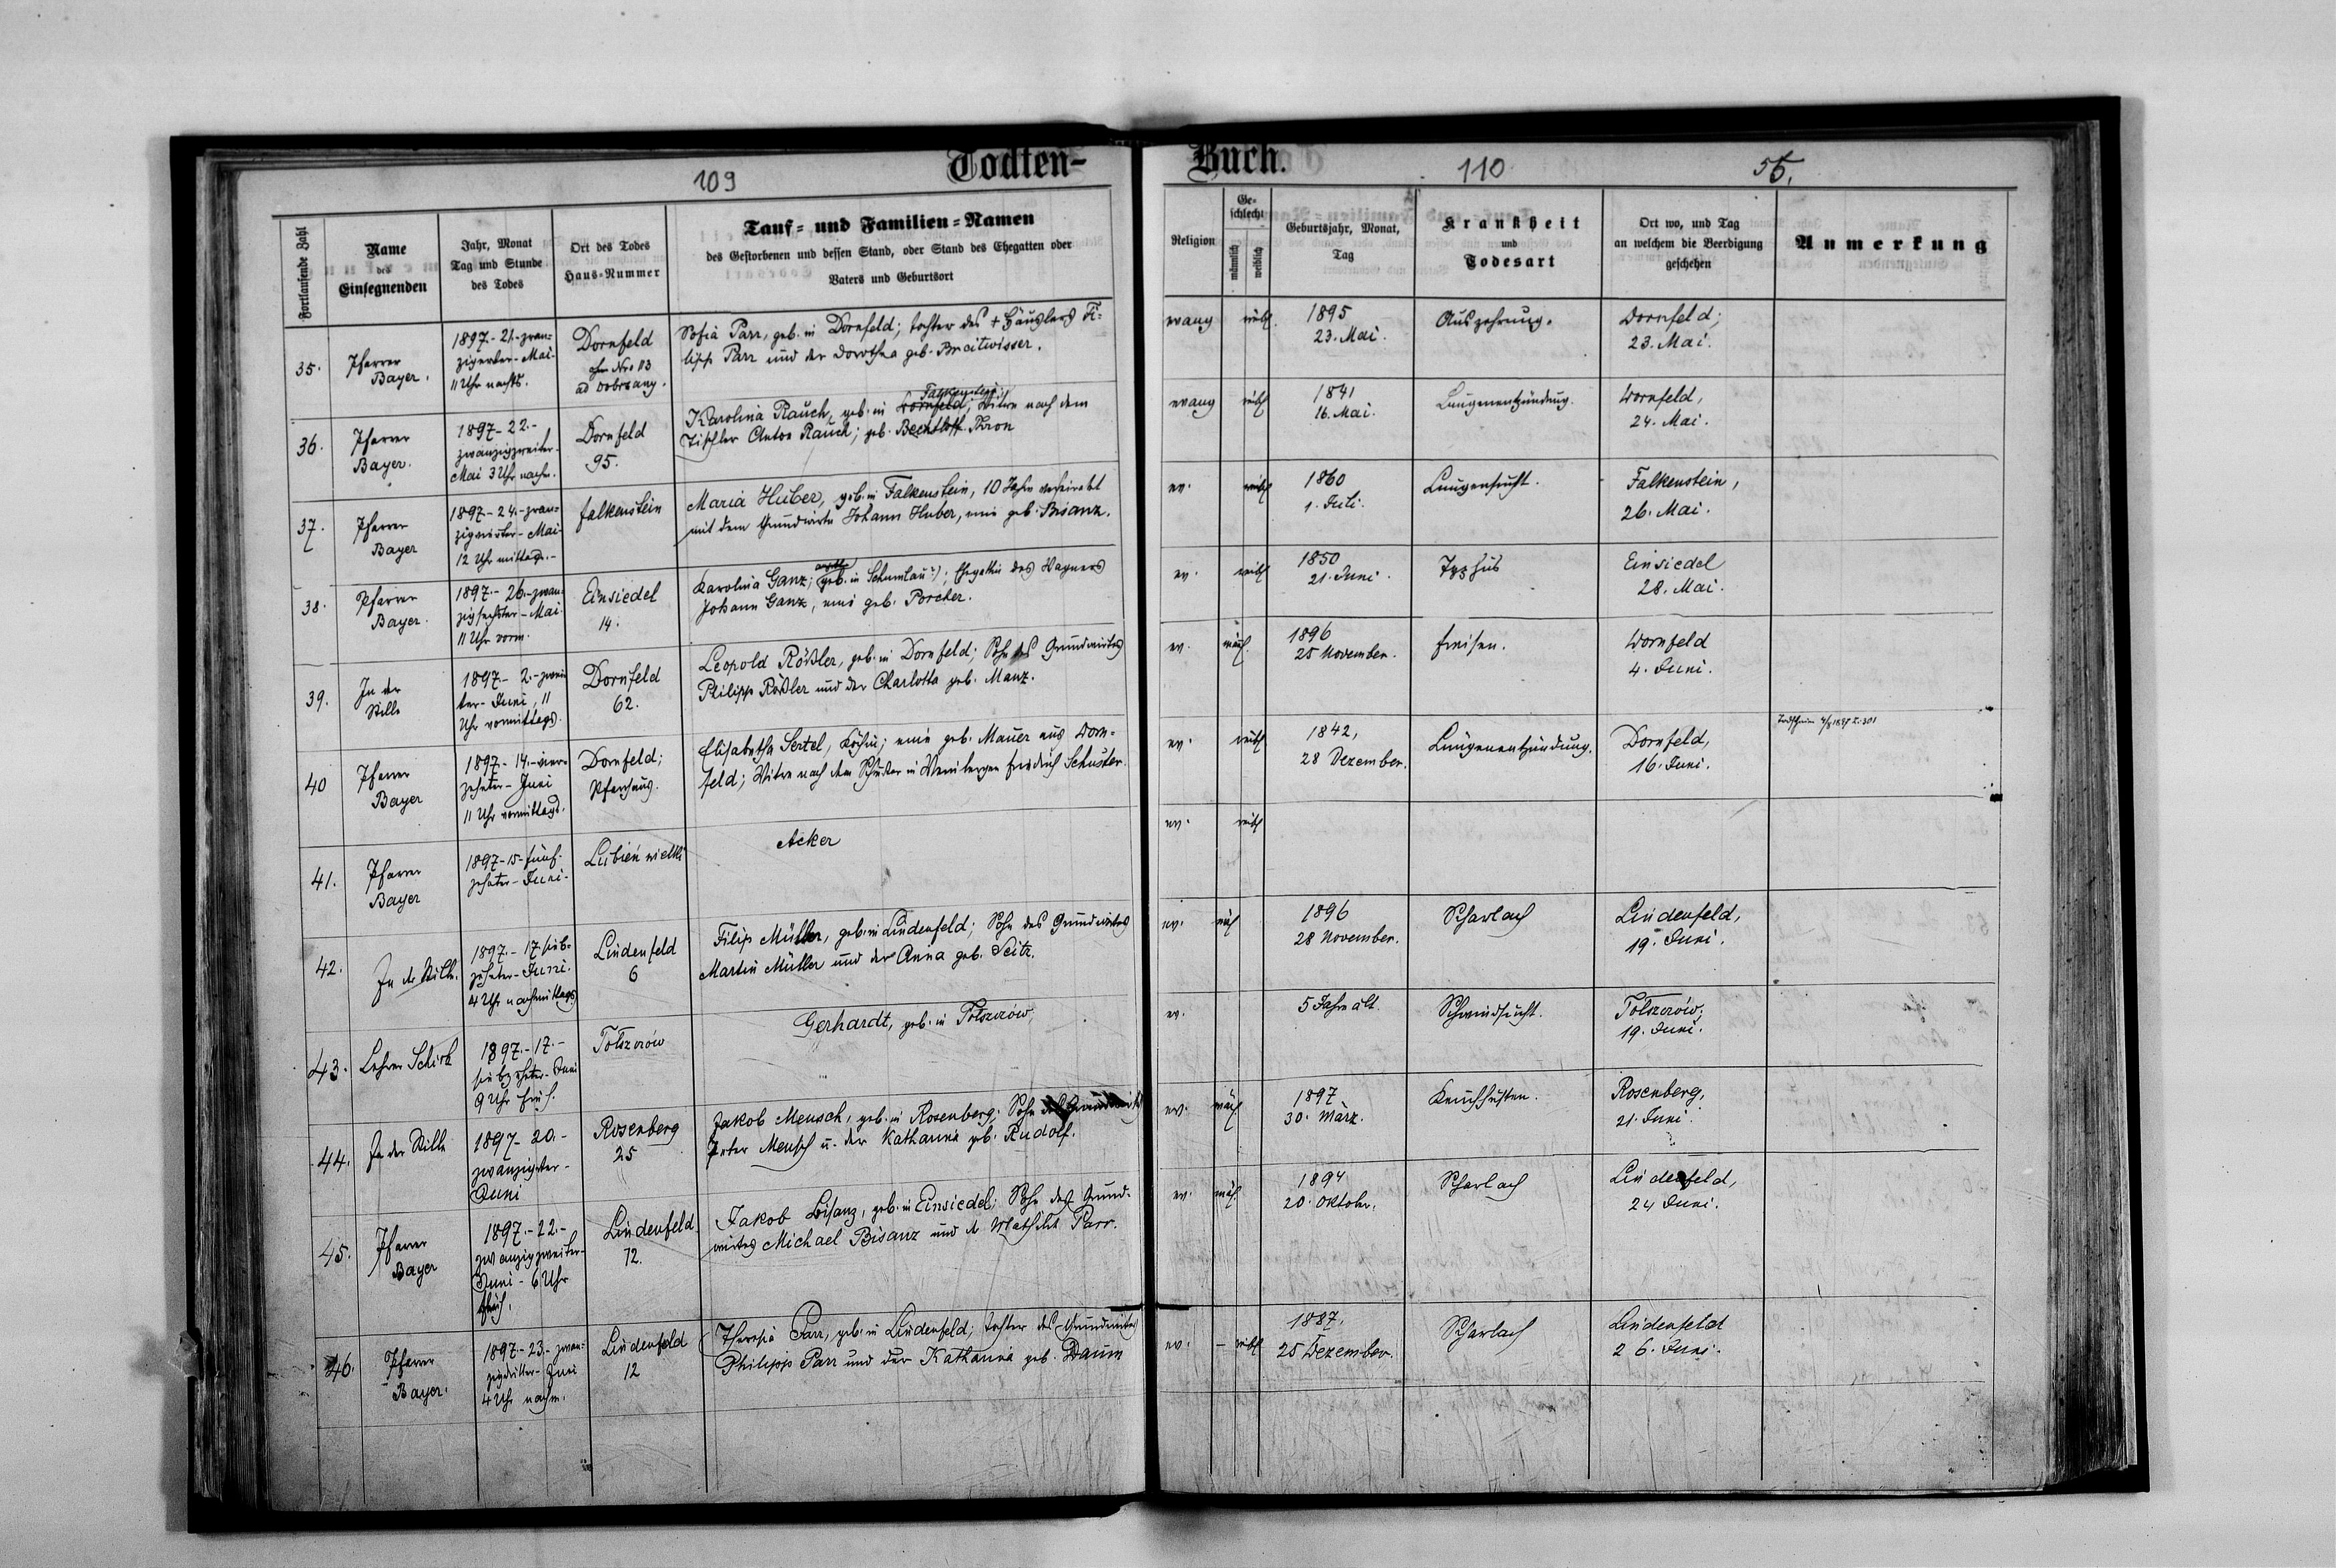 Todten-Buch.
109
110
55.
Fortlaufende Zahl
Name
des
Einsegnenden
Jahr, Monat
Tag und Stunde
des Todes
Ort des Todes
Haus-Nummer
Tauf- und Familien-Namen
des Gestorbenen und dessen Stand, oder Stand des Ehegatten oder
Vaters und Geburtsort
Religion
Ge-
schlecht
männlich
weiblich
Geburtsjahr, Monat,
Tag
Krankheit
und
Todesart
Ort wo, und Tag
an welchem die Beerdigung
geschehen
Anmerkung
35.
Pfarrer
Bayer.
1897.- 21.-zwan-
zigerster-Mai-
11 Uhr nachts.
Dornfeld
Nro 113
ad Dobrzany.
Sofia Parr, geb. in Dornfeld; Tochter des + Häuslers Fi-
lipp Parr und der Dorothea geb. Breitwisser.
evang
weibl.
1895
23. Mai.
Auszehrung.
Dornfeld;
23. Mai.
36.
Pfarrer
Bayer.
1897- 22.-
zwanzigzweiter-
Mai 3 Uhr nachm.
Dornfeld
95.
Falkenstein
Karolina Rauch, geb. in Dornfeld; Witwe nach dem
Tischler Anton Rauch; geb. Bechtloff Kron
evang
weibl
1841
16. Mai.
Lungenentzündung.
Dornfeld,
24. Mai.
37.
Pfarrer
Bayer
1897- 24.-zwan-
zigvierter-Mai-
12 Uhr mittags.-
Falkenstein
Maria Huber, geb. in Falkenstein, 10 Jahre verheiratet
mit dem Grundwirte Johann Huber, eine geb. Bisanz.
ev.
weibl
1860
1. Juli.
Lungensucht.
Falkenstein,
26. Mai.
38.
Pfarrer
Bayer.
1897.- 26.-zwan-
zigsechster-Mai.
11 Uhr vorm.
Einsiedel
14.
Karolina Ganz; geb. in Schumlau; Ehegattin des Wagners
Johann Ganz, eine geb. Porcher.
ev.
weibl
1850
21. Juni.
Typhus
Einsiedel
28. Mai.
39.
In der
Stille
1897- 2.-zwei-
ter-Juni, 11
Uhr vormittags.
Dornfeld
62.
Leopold Rößler, geb. in Dornfeld; Sohn des Grundwirtes
Philipp Rößler und der Charlotta geb. Manz.
ev.
männl.
1896
25 November.
Fraisen.
Dornfeld
4. Juni.
40
Pfarrer
Bayer
1897- 14.-vier-
zehnter-Juni
11 Uhr vormittags.
Dornfeld;
Pfarrhaus.
Elisabetha Sertel, Köchin; eine geb. Mauer aus Dorn-
feld; Witwe nach dem Schuster in Weinbergen Friedrich Schuster.
ev.
weibl
1842,
28 Dezember.
Lungenentzündung.
Dornfeld,
16. Juni.
41.
Pfarrer
Bayer
1897-15-fünf-
zehnter-Juni-
Lubień wielki
Acker
ev.
weibl
42.
In der Stille.
1897.- 17 sieb-
zehnter-Juni.
4 Uhr nachmittags
Lindenfeld
6
Filip Müller, geb. in Lindenfeld; Sohn des Grundwirtes
Martin Müller und der Anna geb. Seitz.
ev.
männl
1896
28 November.
Scharlach
Lindenfeld,
19. Juni.
43.
Lehrer Schick
1897.- 17.-
siebzehnter-Juni
9 Uhr früh.
Tołszczów
Gerhardt, geb. in Tołszczów,
ev.
5 Jahre alt.
Schwindsucht.
Tołszczów,
19. Juni.
44.
In der Stille
1897- 20.-
zwanzigster-
Juni
Rosenberg
25
Jakob Mensch, geb. in Rosenberg; Sohn des Grundwirts
Peter Mensch u. der Katharina geb. Rudolf.
ev.
männl
1897
30. März.
Keuchhusten.
Rosenberg,
21. Juni.
45.
Pfarrer
Bayer
1897.-22.-
zwanzigzweiter-
Juni- 6 Uhr
früh.
Lindenfeld
12.
Jakob Bisanz, geb. in Einsiedel; Sohn des Grund-
wirtes Michael Bisanz und der Mathilde Parr.
ev.
männl
1894
20. Oktober.
Scharlach
Lindenfeld,
24 Juni.
46.
Pfarrer
Bayer.
1897.-23.-zwan-
zigdritter-Juni
4 Uhr nachm.
Lindenfeld
12
Theresia Parr, geb. in Lindenfeld; Tochter des Grundwirtes
Philipp Parr und der Katharina geb. Daum
ev.
weibl
1887,
25 Dezember.
Scharlach
Lindenfeld
26. Juni.